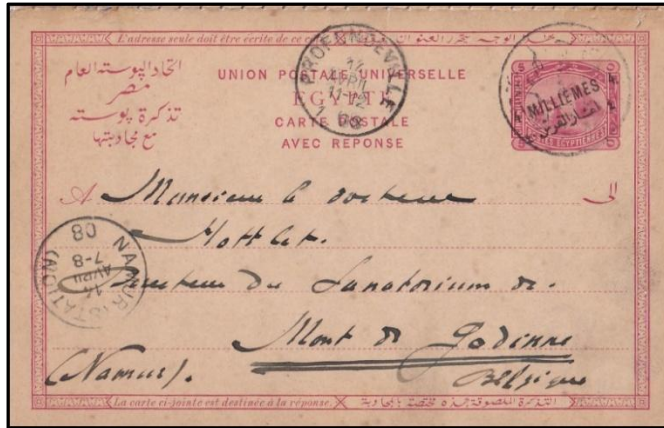 L'adresse seule doit être écrite de ce
اتحاد البوستة العام
مصر
تذكرة بوسته
مع مجاوبتها
UNION POSTALE UNIVERSELLE
EGYPTE
CARTE POSTALE
AVEC REPONSE
PROFONDEVILLE
14
AVRIL
11-12
1908
4 MILLIÈMES 4
A Monsieur le docteur الى
Hottlet.
Directeur du Sanatorium de
Mont de Godinne
(Namur). Belgique
NAMUR (STATION)
14
AVRIL
7-8
08
La carte ci-jointe est destinée à la réponse.